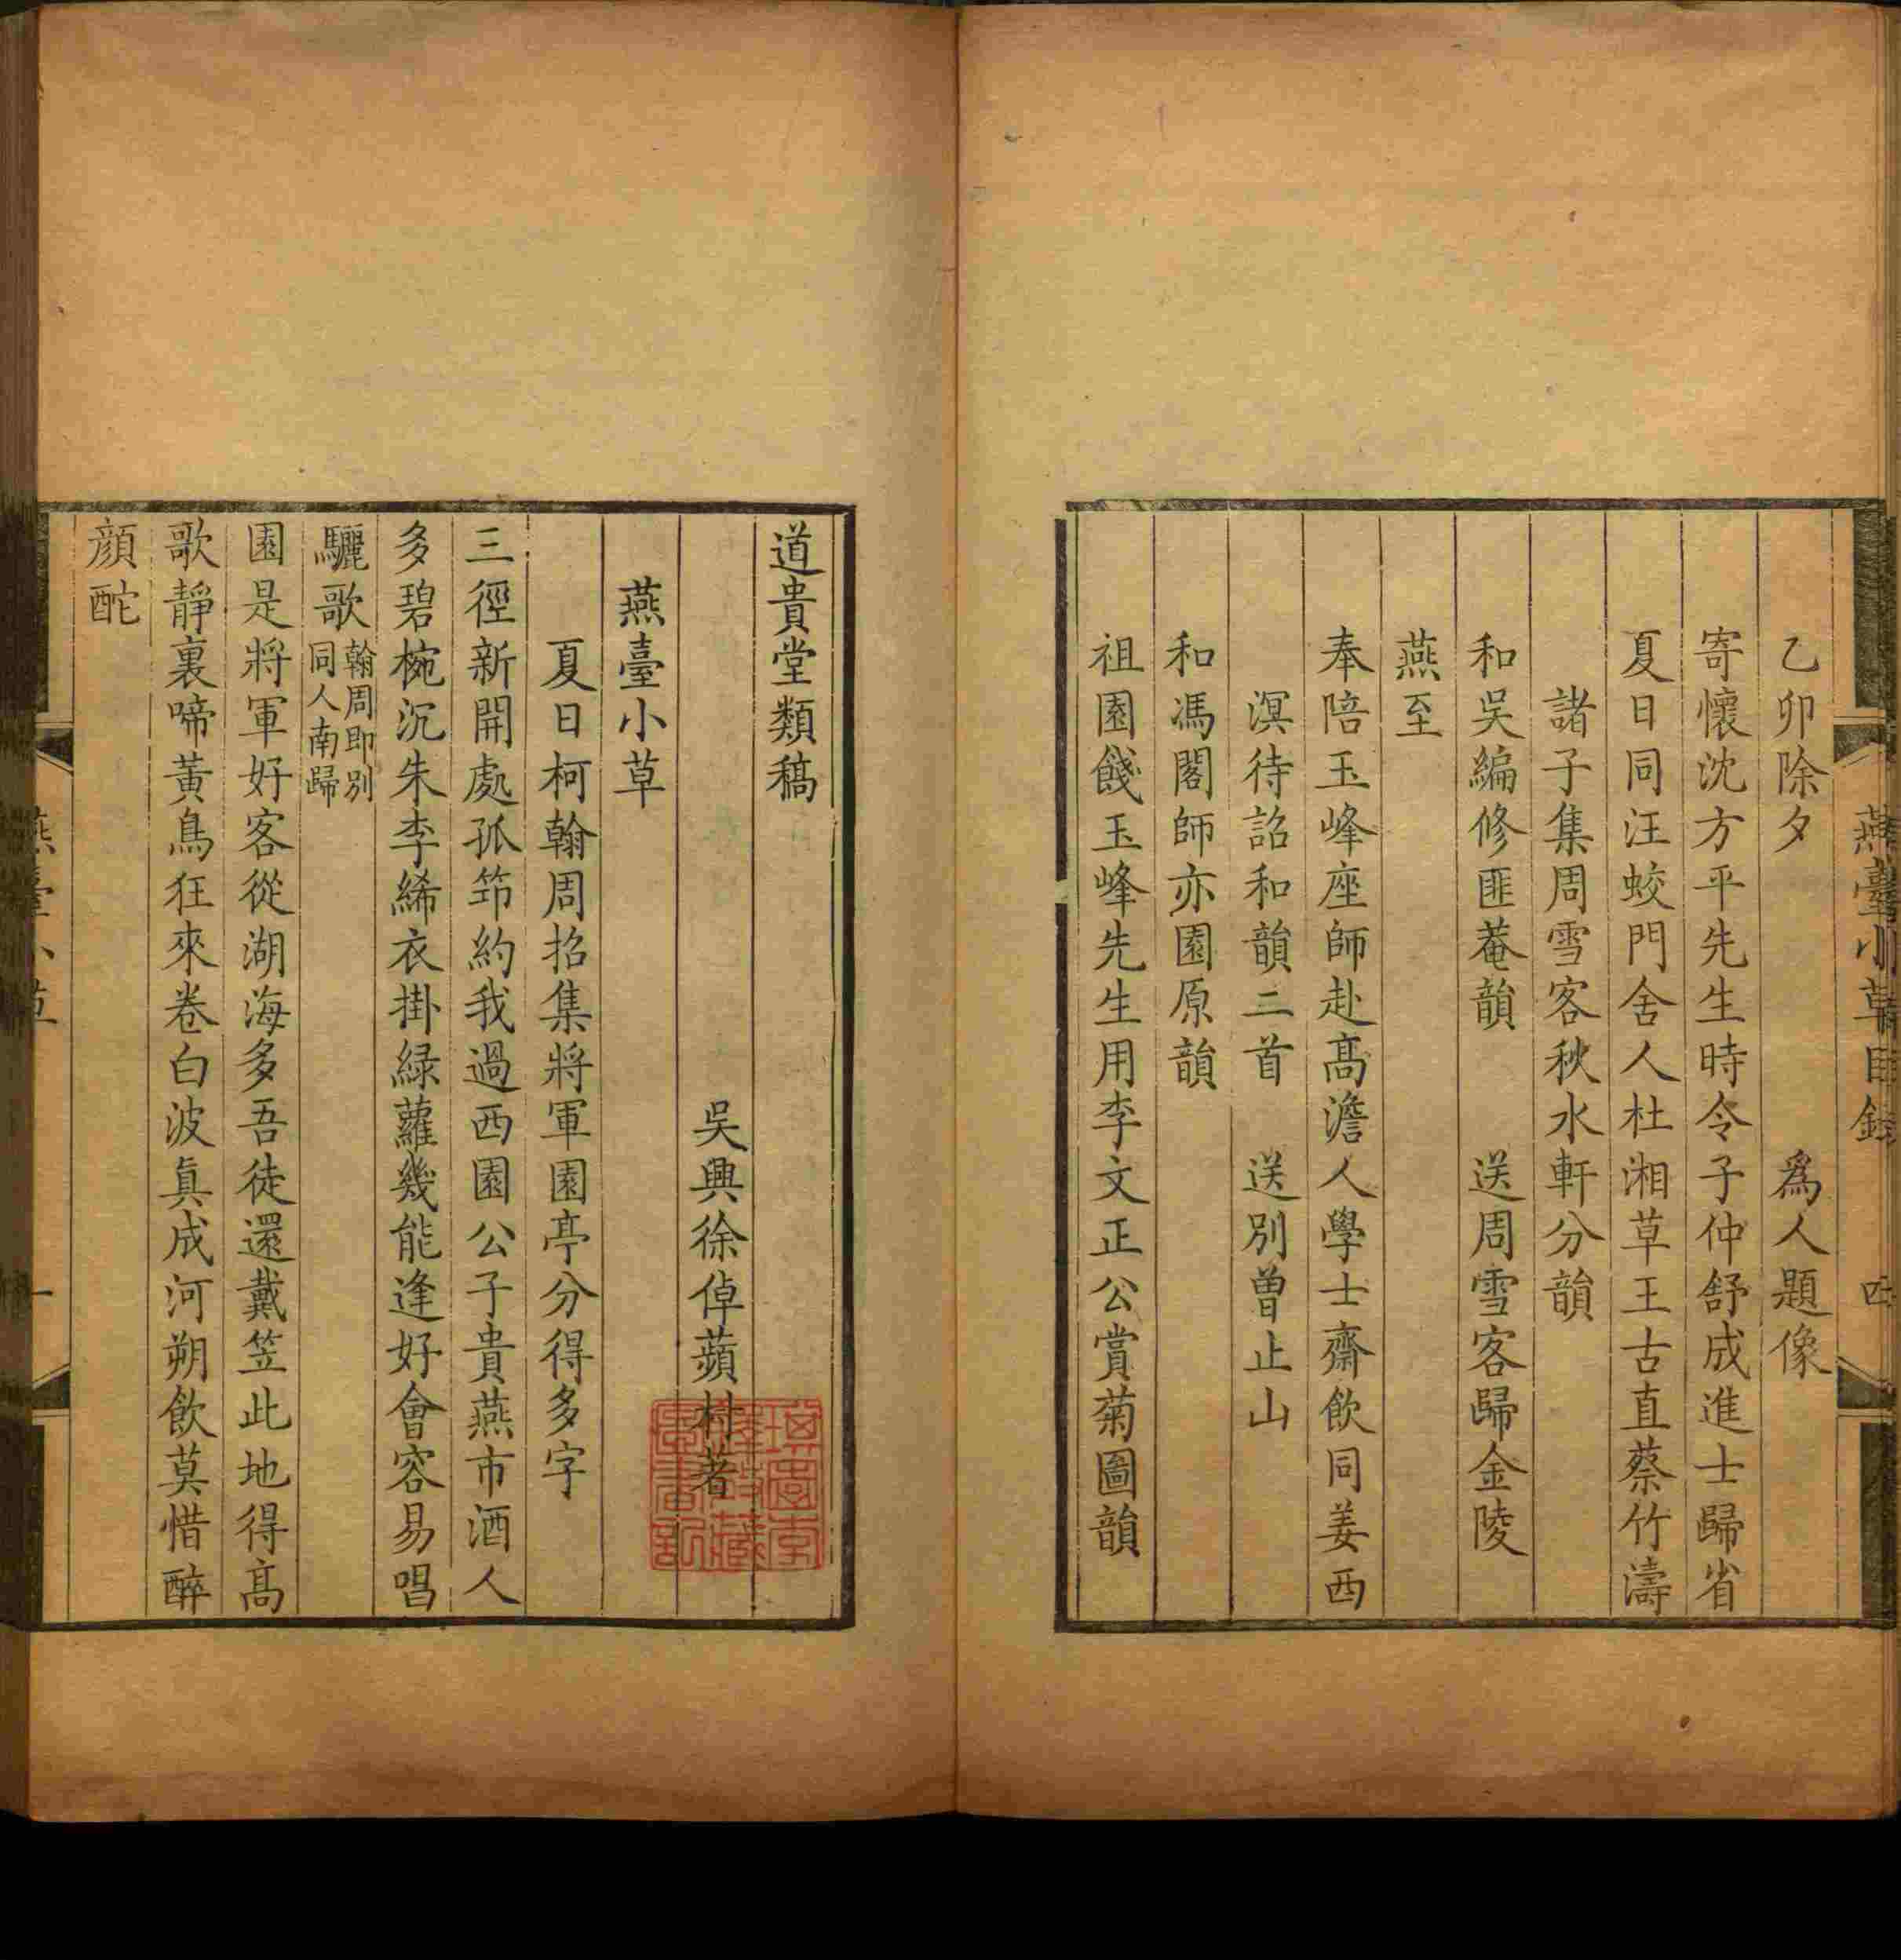 燕臺小草目錄 四
乙卯除夕 爲人題像
寄懷沈方平先生時令子仲舒成進士歸省
夏日同汪蛟門舍人杜湘草王古直蔡竹濤
諸子集周雪客秋水軒分韻
和吳編修匪菴韻 送周雪客歸金陵
燕至
奉陪玉峰座師赴髙澹人學士齋飲同姜西
溟待詔和韻二首 送別曾止山
和馮閣師亦園原韻
祖園餞玉峰先生用李文正公賞菊圖韻
道貴堂類稿
吳興徐倬蘋村著
燕臺小草
夏日柯翰周招集將軍園亭分得多字
三徑新開處孤筇約我過西園公子貴燕市酒人
多碧椀沉朱李絺衣掛緑蘿幾能逢好會容易唱
驪歌翰周即别同人南歸
園是將軍好客從湖海多吾徒還戴笠此地得髙
歌靜裏啼黃鳥狂來卷白波真成河朔飲莫惜醉
顔酡
燕臺小草 一